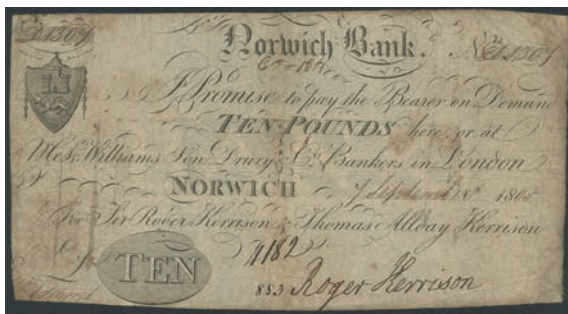 Norwich Bank.
I Promise to pay the Bearer on Demand
TEN POUNDS here or at
Williams Son Drury & Co. Bankers in London
NORWICH 180
For Sir Roger Kerrison & Thomas Allday Kerrison
4182
TEN
883 Roger Kerrison